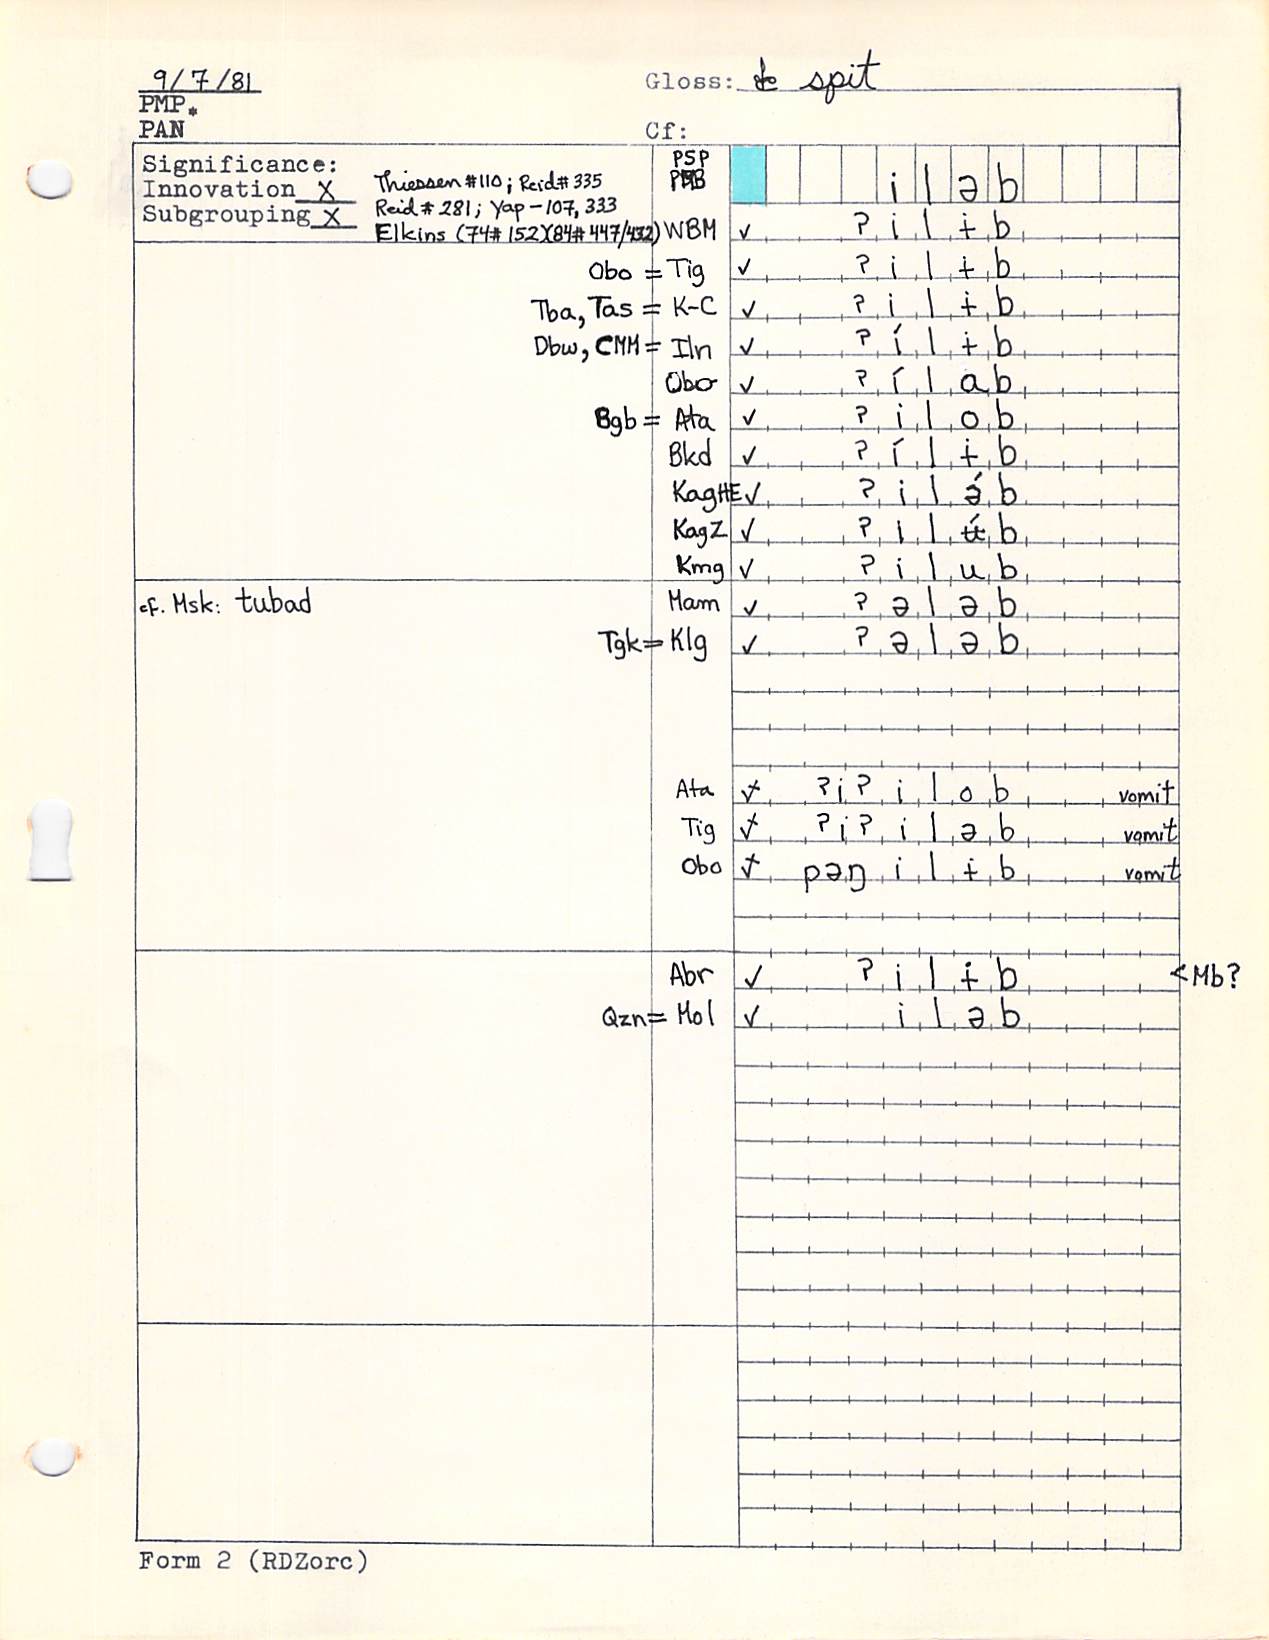 9/7/81 Gloss: to spit
PMP*
PAN Cf:
Significance: PSP
Innovation X Thiessen #110; Reid# 335 PMB iləb
Subgrouping X Reid # 281; Yap-107, 333
Elkins (74# 152)(84# 447/432) WBM ✓ ʔilɨb
Obo = Tig ✓ ʔilɨb
Tba, Tas = K-C ✓ ʔilɨb
Dbw, CMM = Iln ✓ ʔílɨb
Obo ✓ ʔílab
Bgb = Ata ✓ ʔilob
Bkd ✓ ʔílɨb
KagHE ✓ ʔilə́b
KagZ ✓ ʔilʉ́b
Kmg ✓ ʔilub
cf. Msk: tubad Mam ✓ ʔələb
Tgk = Klg ✓ ʔələb
Ata ʔiʔilob vomit
Tig ʔiʔiləb vomit
Obo pəŋilɨb vomit
Abr ✓ ʔilɨb < Mb?
Qzn = Mol ✓ iləb
Form 2 (RDZorc)